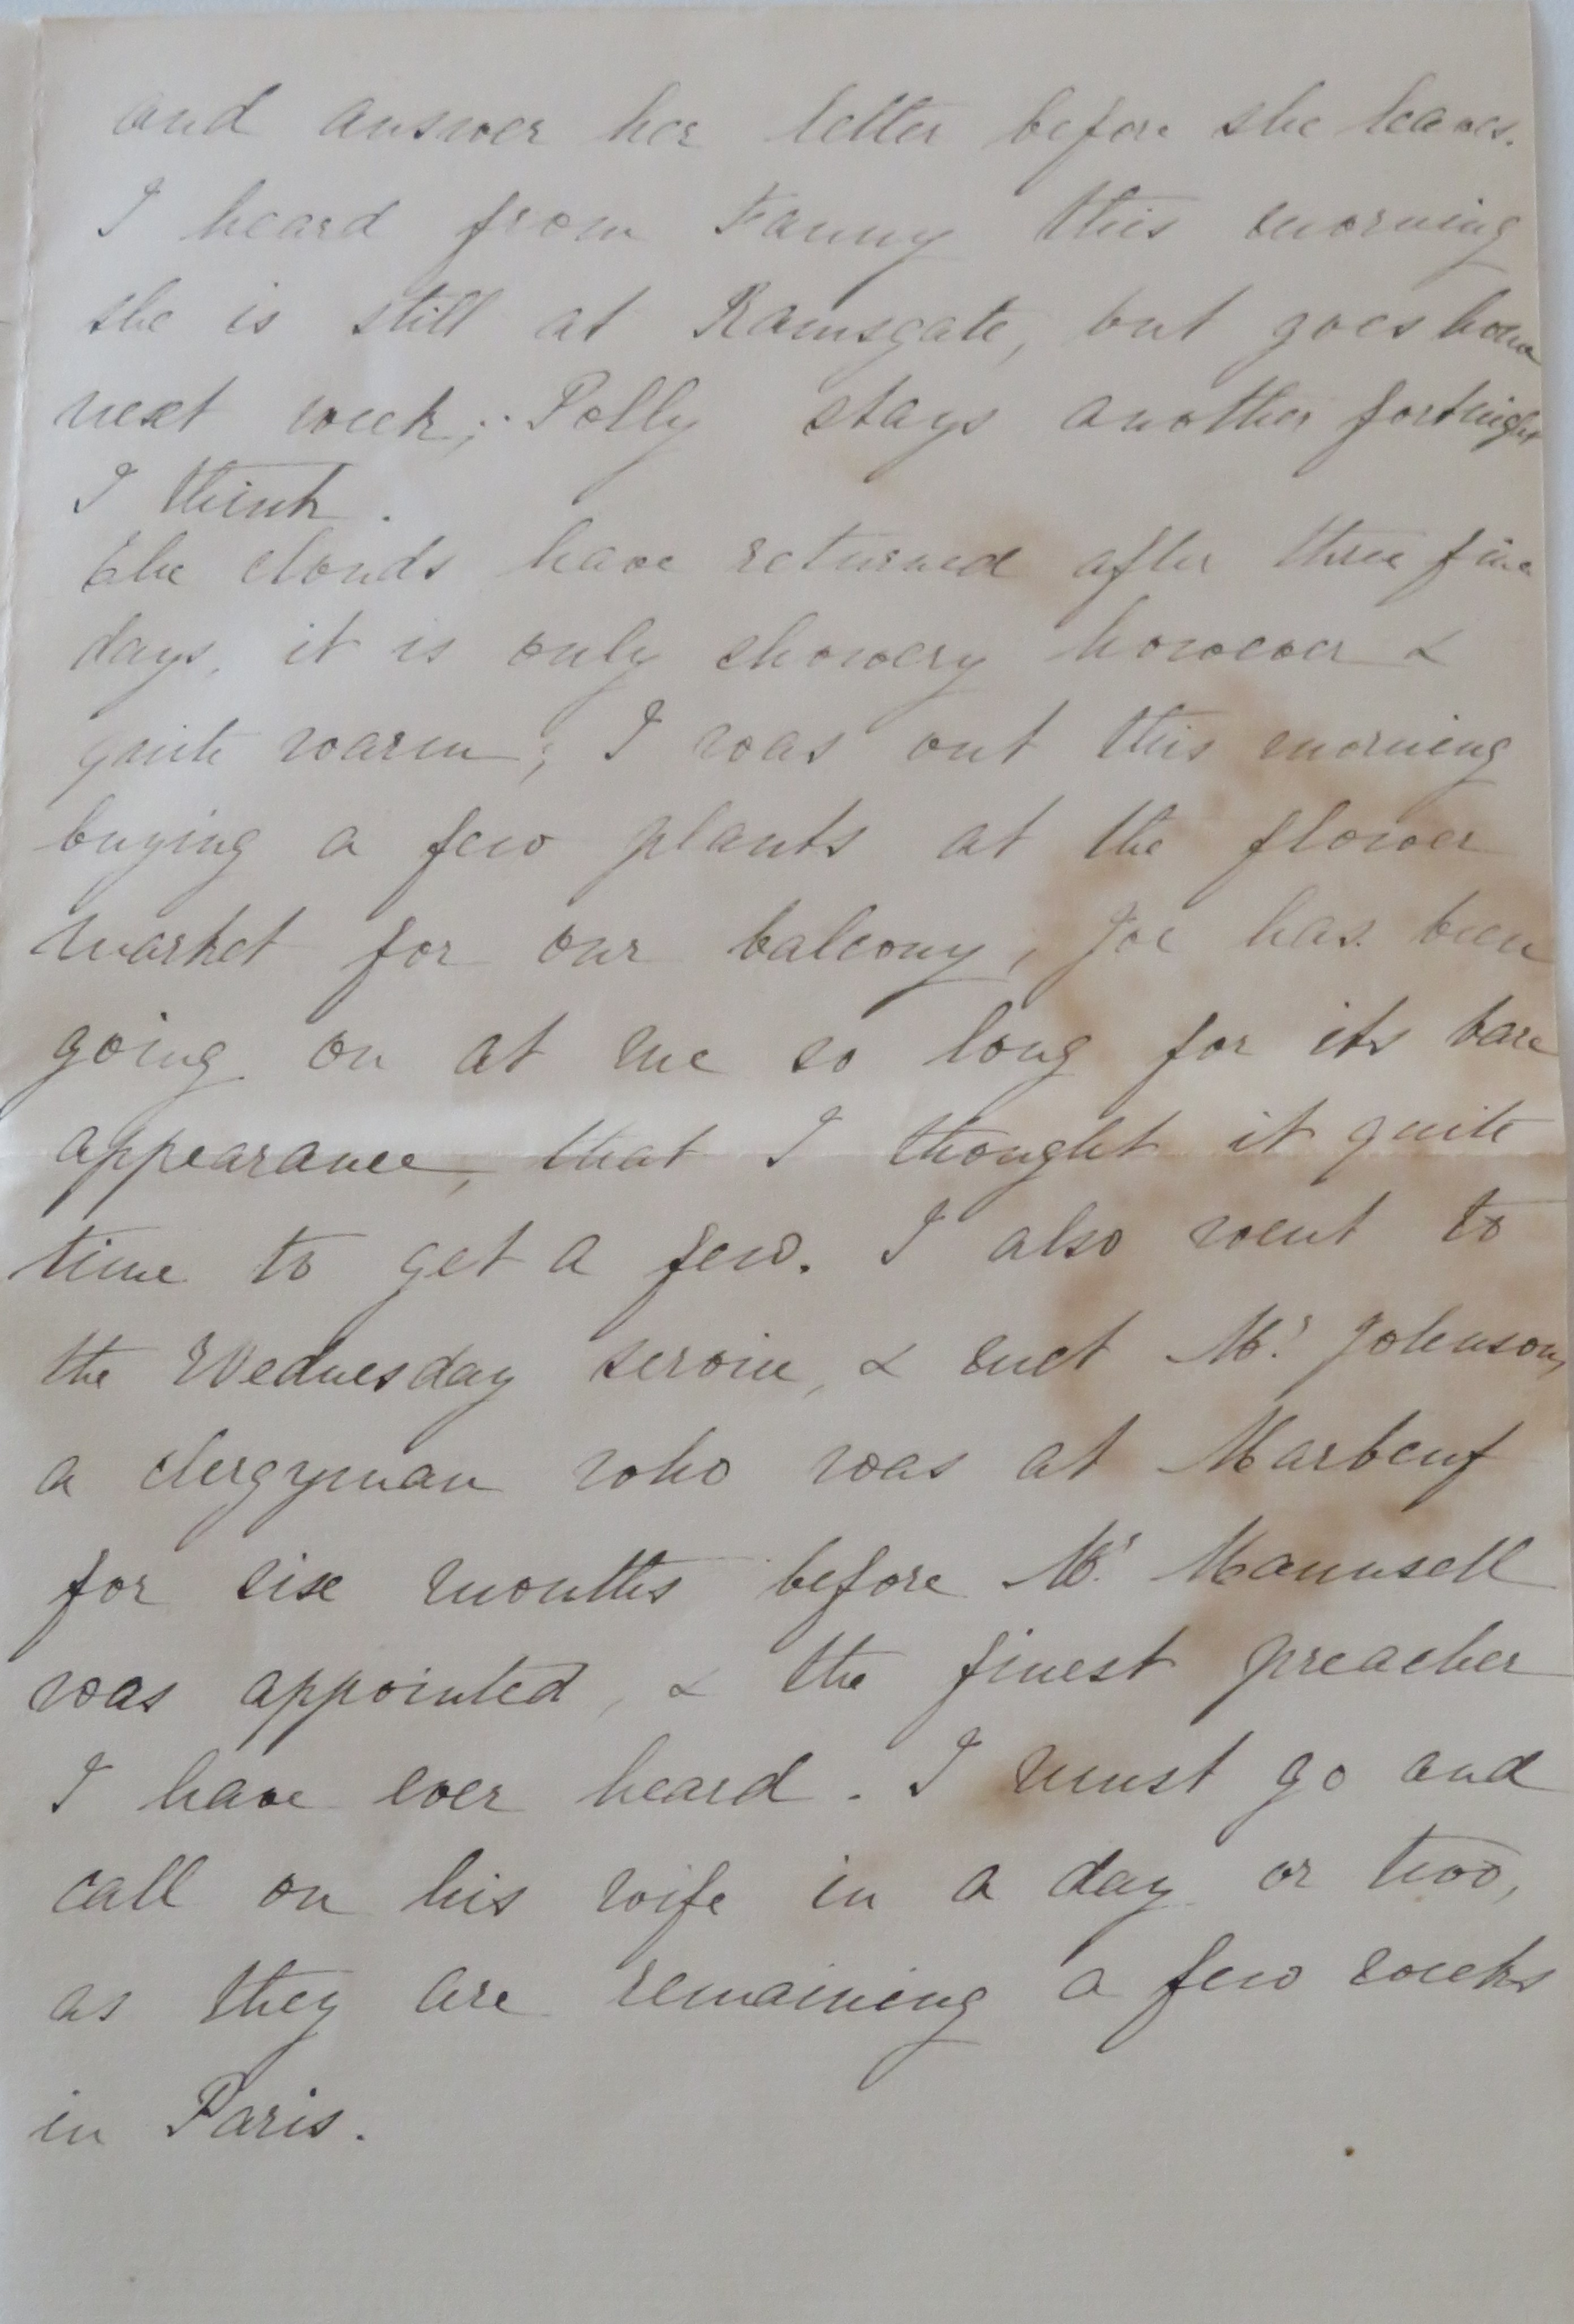 and answer her letter before she leaves.
I heard from Fanny this morning
she is still at Ramsgate, but goes home
next week; Polly stays another fortnight
I think.
The clouds have returned after three fine
days, it is only showery however &
quite warm; I was out this morning
buying a few plants at the flower
market for our balcony, Joe has been
going on at me so long for its bare
appearance, that I thought it quite
time to get a few. I also went to
the Wednesday service, & met Mr. Johnson,
a clergyman who was at Marbeuf
for six months before Mr. Maunsell
was appointed, & the finest preacher
I have ever heard. I must go and
call on his wife in a day or two,
as they are remaining a few weeks
in Paris.